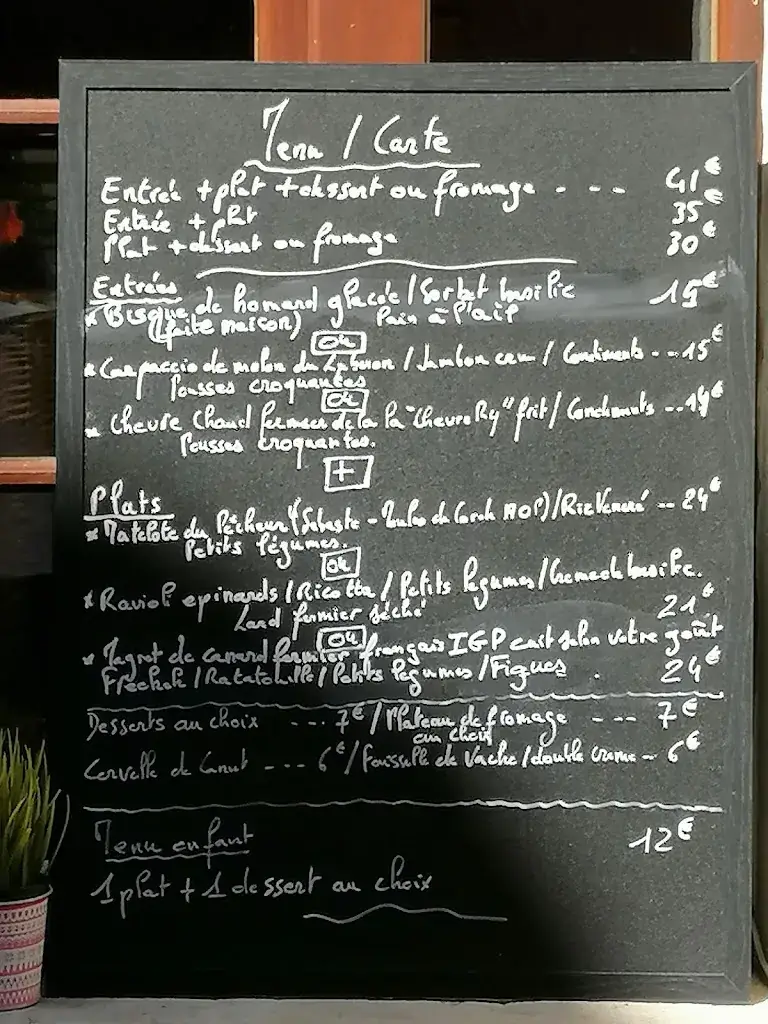 Menu / Carte
Entrée + plat + dessert ou fromage - - - 41€
Entrée + plat 35€
Plat + dessert ou fromage 30€
Entrées
* Bisque de homard glacée / Sorbet basilic 15€
(faite maison) Pain à l'ail
ou
* Carpaccio de melon du / Jambon cru / Condiments - - 15€
Pousses croquantes
ou
* Chèvre Chaud fermier de la "Chèvre Ry" frit / Condiments - - 14€
Pousses croquantes.
+
Plats
* Matelote du Pêcheur (Sébaste - Moules de AOP) / Riz Vénéré -- 24€
Petits légumes.
ou
* Ravioli épinards / Ricotta / Petits légumes / basilic.
Lard fumier séché 21€
ou
* Magret de canard fermier français IGP cuit selon votre goût
/ Ratatouille / Petits légumes / Figues . 24€
Desserts au choix - - - 7€ / Plateau de fromage - - - 7€
au choix
Cervelle de Canut - - - 6€ / Faisselle de Vache / double crème - 6€
Menu enfant 12€
1 plat + 1 dessert au choix